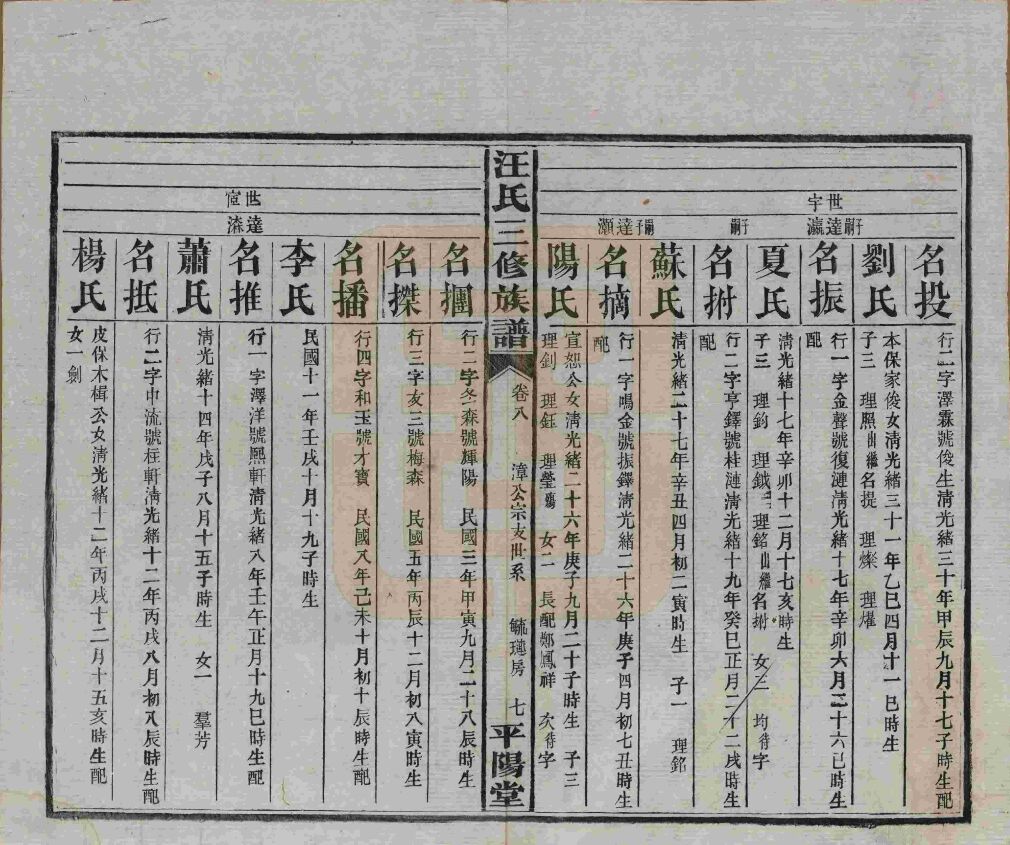 世宇
子嗣達瀛
子嗣
子嗣達灝
名投
行二字澤霖號俊生清光緒三十年甲辰九月十七子時生配
劉氏
本保家俊女清光緒三十一年乙巳四月十一巳時生
子三 理照出繼名提 理燦 理燿
名振
行一字金聲號復漣清光緒十七年辛卯六月二十六己時生
配
夏氏
清光緒十七年辛卯十二月十七亥時生
子三 理鈞 理鉞 理銘出繼名拊 女三 均待字
名拊
行二字亨鐸號桂漣清光緒十九年癸巳正月二十二戌時生
配
蘇氏
清光緒二十七年辛丑四月初二寅時生 子一 理銘
名摛
行一字鳴金號振鐸清光緒二十六年庚子四月初七丑時生
配
陽氏
宣恕公女清光緒二十六年庚子九月二十子時生 子三
理釗 理鈺 理瑩殤 女二 長配鄭鳳祥 次待字
汪氏三修族譜
卷八 漳公宗支世系 毓璉房 七
平陽堂
世宣
達淼
名摑
行二字冬森號輝陽 民國三年甲寅九月二十八辰時生
名搩
行三字友三號梅森 民國五年丙辰十二月初八寅時生
名播
行四字和玉號才寶 民國八年己未十月初十辰時生配
李氏
民國十一年壬戌十月十九子時生
名推
行一字澤洋號熙軒清光緒八年壬午正月十九巳時生配
蕭氏
清光緒十四年戊子八月十五子時生 女一 羣芳
名抵
行二字中流號桂軒清光緒十二年丙戌八月初八辰時生配
楊氏
皮保木楫公女清光緒十二年丙戌十二月十五亥時生配
女一 劍